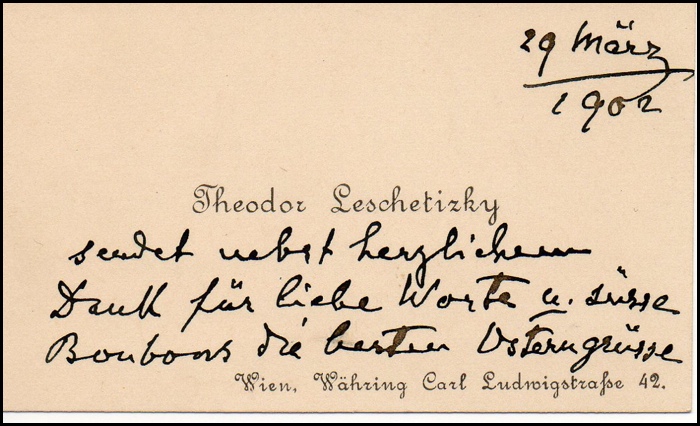 29 März
1902
Theodor Leschetizky
sendet nebst herzlichem
Dank für liebe Worte u. süsse
Bonbons die besten Osterngrüsse
Wien, Währing Carl Ludwigstraße 42.